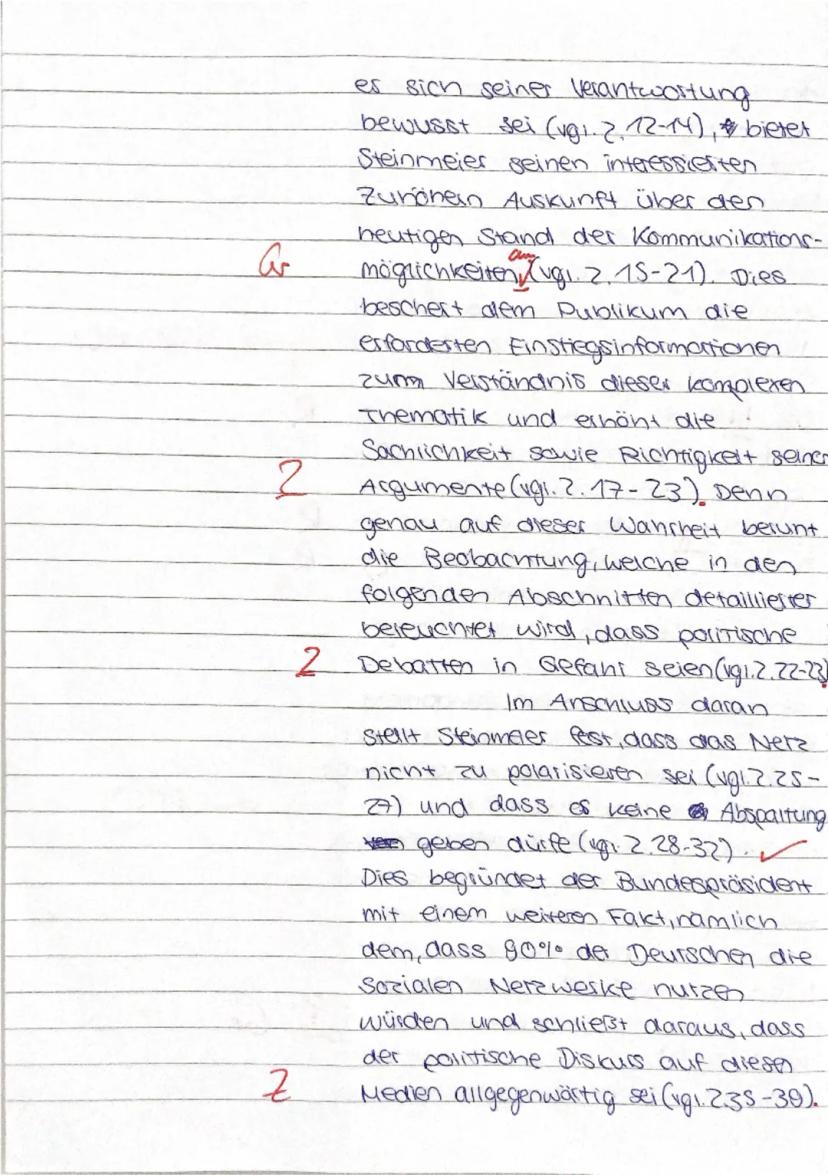 es sich seiner Verantwortung
bewusst sei (vgl. Z. 12-14), bietet
Steinmeier seinen interessierten
Zuhörern Auskunft über den
heutigen Stand der Kommunikations-
Gr möglichkeiten an (vgl. Z. 15-21). Dies
beschert dem Publikum die
erforderten Einstiegsinformationen
zum Verständnis dieser komplexen
Thematik und erhöht die
Sachlichkeit sowie Richtigkeit seiner
Z Argumente (vgl. Z. 17-23). Denn
genau auf dieser Wahrheit beruht
die Beobachtung, welche in den
folgenden Abschnitten detaillierter
beleuchtet wird, dass politische
Z Debatten in Gefahr seien (vgl. Z. 22-23).
Im Anschluss daran
stellt Steinmeier fest, dass das Netz
nicht zu polarisieren sei (vgl. Z. 25-
27) und dass es keine Abspaltung
geben dürfe (vgl. Z. 28-32). ✓
Dies begründet der Bundespräsident
mit einem weiteren Fakt, nämlich
dem, dass 90% der Deutschen die
Sozialen Netzwerke nutzen
würden und schließt daraus, dass
der politische Diskurs auf diesen
Z Medien allgegenwärtig sei (vgl. Z. 35-39).